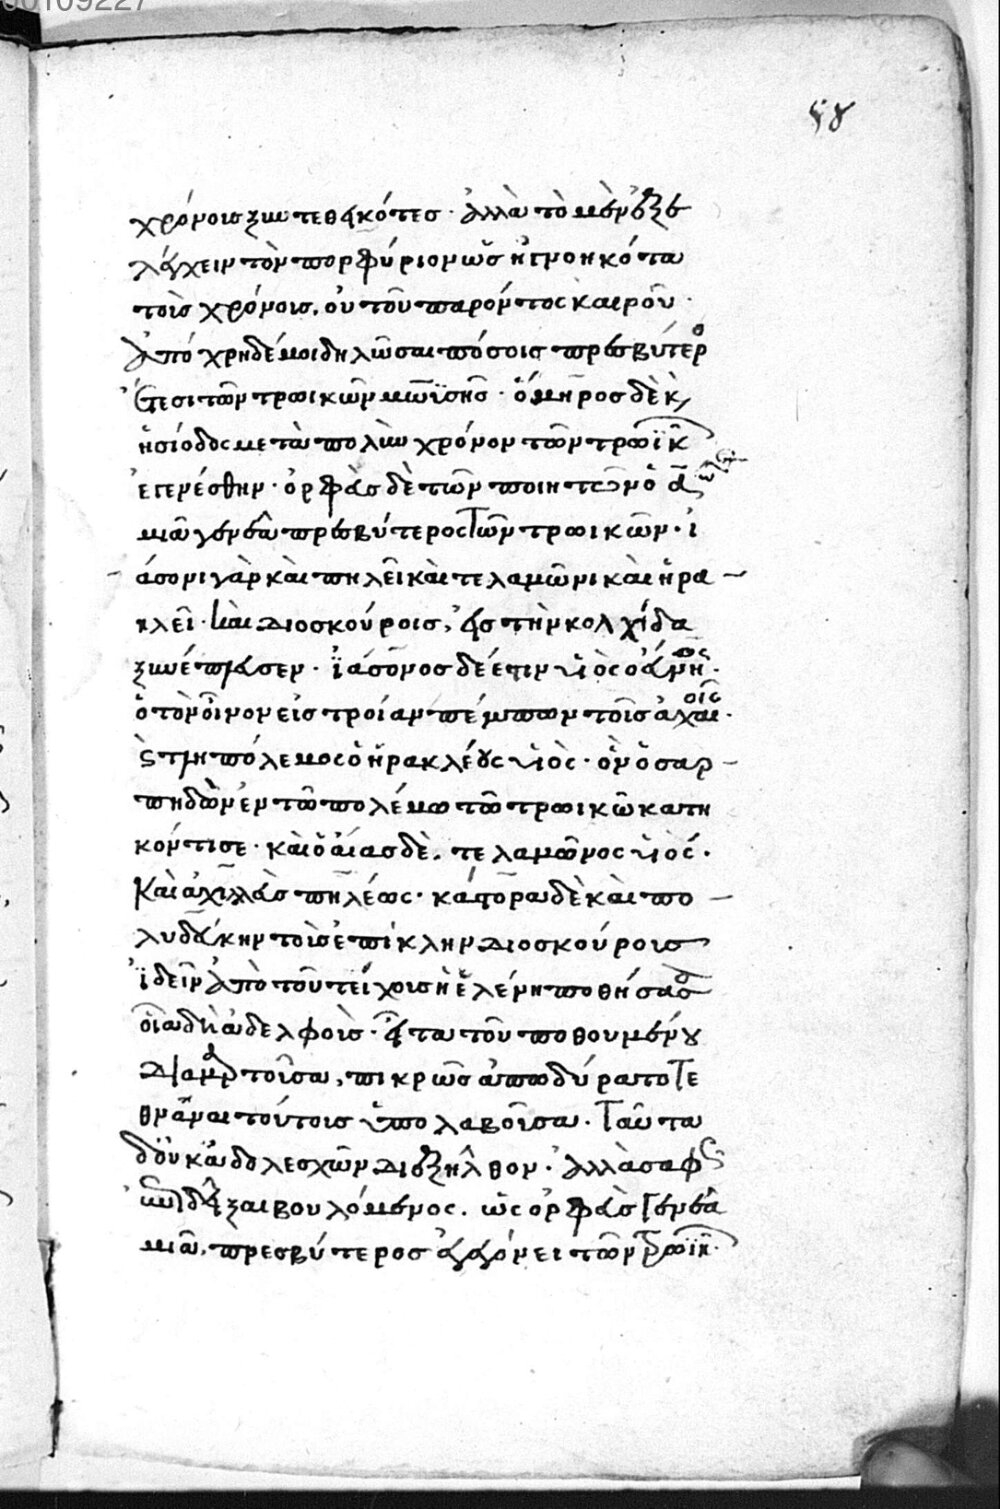 00109227
χρόνοις συντεθηκότες · ἀλλὰ τὸ μὲν ἐξε
λέγχειν τὸν πορφύριον ὡς ἠγνοηκότα
τοῖς χρόνοις, οὐ τοῦ παρόντος καιροῦ ·
ἀπόχρη δέ μοι δηλῶσαι πόσοις πρεσβύτερος
ἔτεσι τῶν τρωικῶν μωϊσῆς · ὅμηρος δὲ κ
ἡσίοδος μετὰ πολὺν χρόνον τῶν τρωϊκ
ἐγενέσθην · ὀρφεὺς δὲ τῶν ποιητῶν ὁ α
μιᾶ γενεᾶ πρεσβύτερος τῶν τρωικῶν · ἰ
άσονι γὰρ καὶ πηλεῖ καὶ τελαμῶνι καὶ ἡρα
κλεῖ · καὶ διοσκούροις, εἰς τὴν κολχίδα
συνέπλευσεν · ϊάσονος δέ ἐστιν υἱὸς ὁ
ὁ τὸν οἶνον εἰς τροίαν πέμπων τοῖς ἀχαιοῖς ·
ϛ τληπόλεμος ὁ ἡρακλέους υἱὸς · ὃν ὁ σαρ
πηδὼν ἐν τῶ πολέμω τῶ τρωικῶ κατη
κόντισε · καὶ ὁ αἴας δὲ, τελαμῶνος υἱός ·
Καὶ ἀχιλλεὺς πηλέως · κάστορα δὲ καὶ πο
λυδεύκην τοῖς ἐπίκλην διοσκούροις
ϊδεῖν ἀπὸ τοῦ τείχους ἡ ἑλένη ποθήσασα
οἷα δὴ ἀδελφοὺς · εἶτα τοῦ ποθουμένου
διαμαρτοῦσα, πικρῶς ἀπωδύρατο τε
θνᾶναι τούτους ὑπολαβοῦσα · ταῦτα
δ οὐκ ἀδολεσχῶν διεξῆλθον · ἀλλὰ σαφ
δεῖξαι βουλόμενος · ὡς ὀρφεὺς γενεᾶ
μιᾶ, πρεσβύτερος ἐγεγόνει τῶν τρωϊκ ·